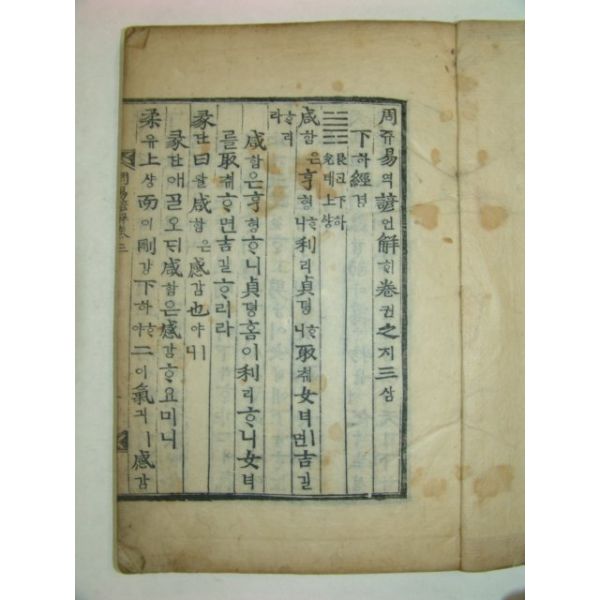 周쥬易역諺언解ᄒᆡ卷권之지三삼
下하經경
艮간下하
兌태上샹
咸함은亨형ᄒᆞ니利리貞뎡ᄒᆞ니取ᄎᆔ女녀ㅣ면吉길
ᄒᆞ리라
咸함은亨형ᄒᆞ니貞뎡홈이利리ᄒᆞ니女녀
를取ᄎᆔᄒᆞ면吉길ᄒᆞ리라
彖단曰왈咸함은感감也야ㅣ니
彖단애ᄀᆞᆯ오ᄃᆡ咸함은感감ᄒᆞ요미니
柔유上샹而이剛강下하ᄒᆞ야二이氣긔ㅣ感감
周易諺解卷三